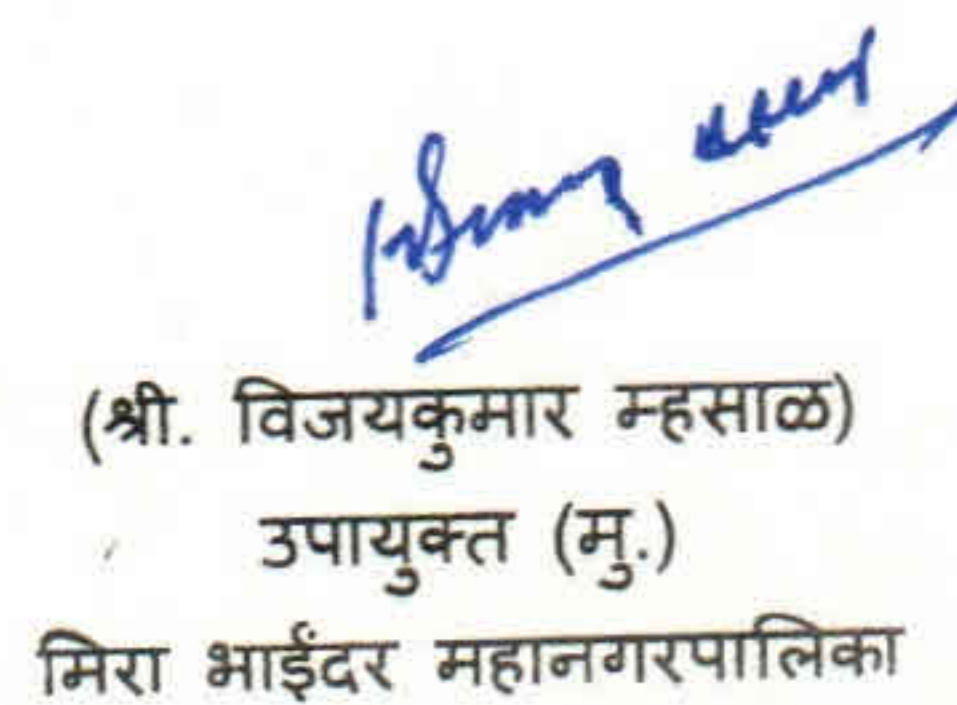 (श्री. विजयकुमार म्हसाळ)
उपायुक्त (मु.)
मिरा भाईंदर महानगरपालिका